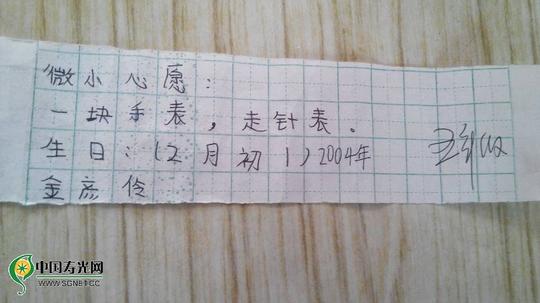 微小心愿：
一块手表，走针表。
生日：（2月初1）2004年
金彦伶
中国寿光网
WWW.SGNET.CC